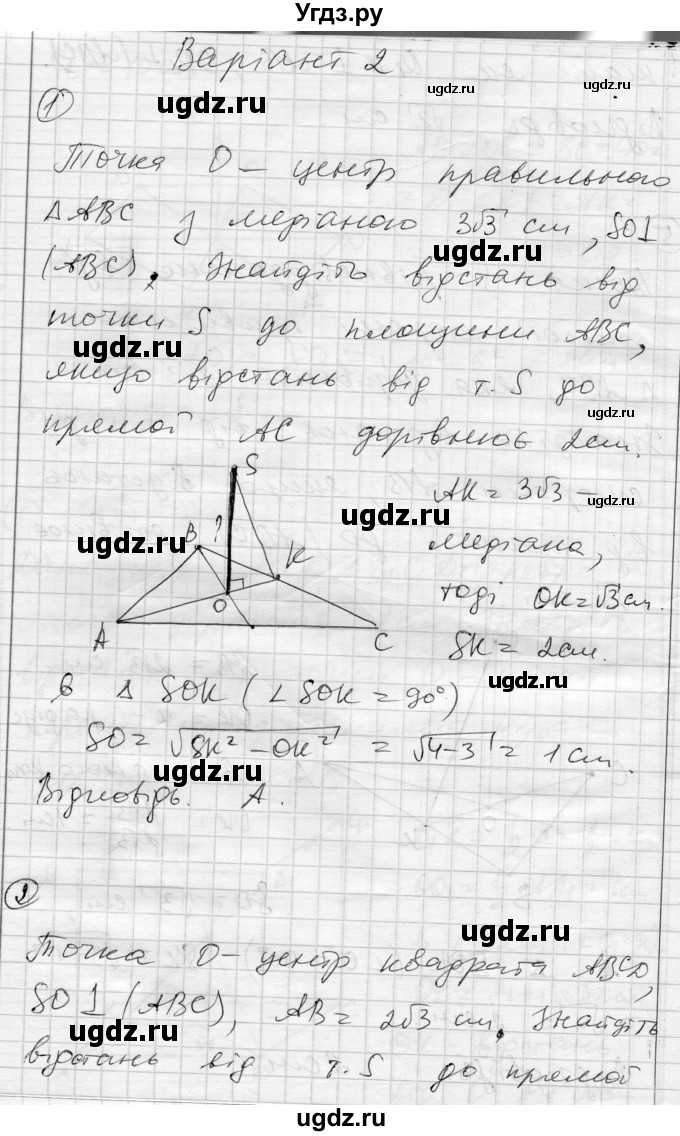 Угдз.ру
Варіант 2
ugdz.ru
ugdz.ru
ugdz.ru
①
Точка O – центр правильного
ΔABC з медіаною 3√3 см, SO⊥
ugdz.ru
(ABC). Знайдіть відстань від
точки S до площини ABC,
ugdz.ru
якщо відстань від т. S до
ugdz.ru
прямої AC дорівнює 2см.
S
AK = 3√3 –
ugdz.ru
ugdz.ru
ugdz.ru
B
?
K
медіана,
O
тоді OK=√3см.
A
C
SK = 2см.
В Δ SOK (∠SOK = 90°)
ugdz.ru
SO = √SK² – OK² = √4–3 = 1 см.
ugdz.ru
Відповідь. A.
ugdz.ru
②
ugdz.ru
Точка O – центр квадрата ABCD,
SO⊥(ABC), AB = 2√3 см. Знайдіть
ugdz.ru
ugdz.ru
відстань від т. S до прямої
ugdz.ru